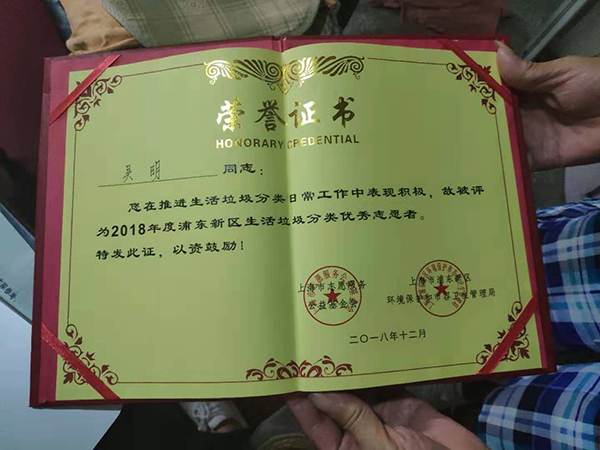 荣誉证书
HONORARY CREDENTIAL
吴明 同志：
您在推进生活垃圾分类日常工作中表现积极，故被评
为2018年度浦东新区生活垃圾分类优秀志愿者。
特发此证，以资鼓励！
上海市志愿服务 上海市浦东新区
公益基金会 环境保护和市容卫生管理局
二〇一八年十二月